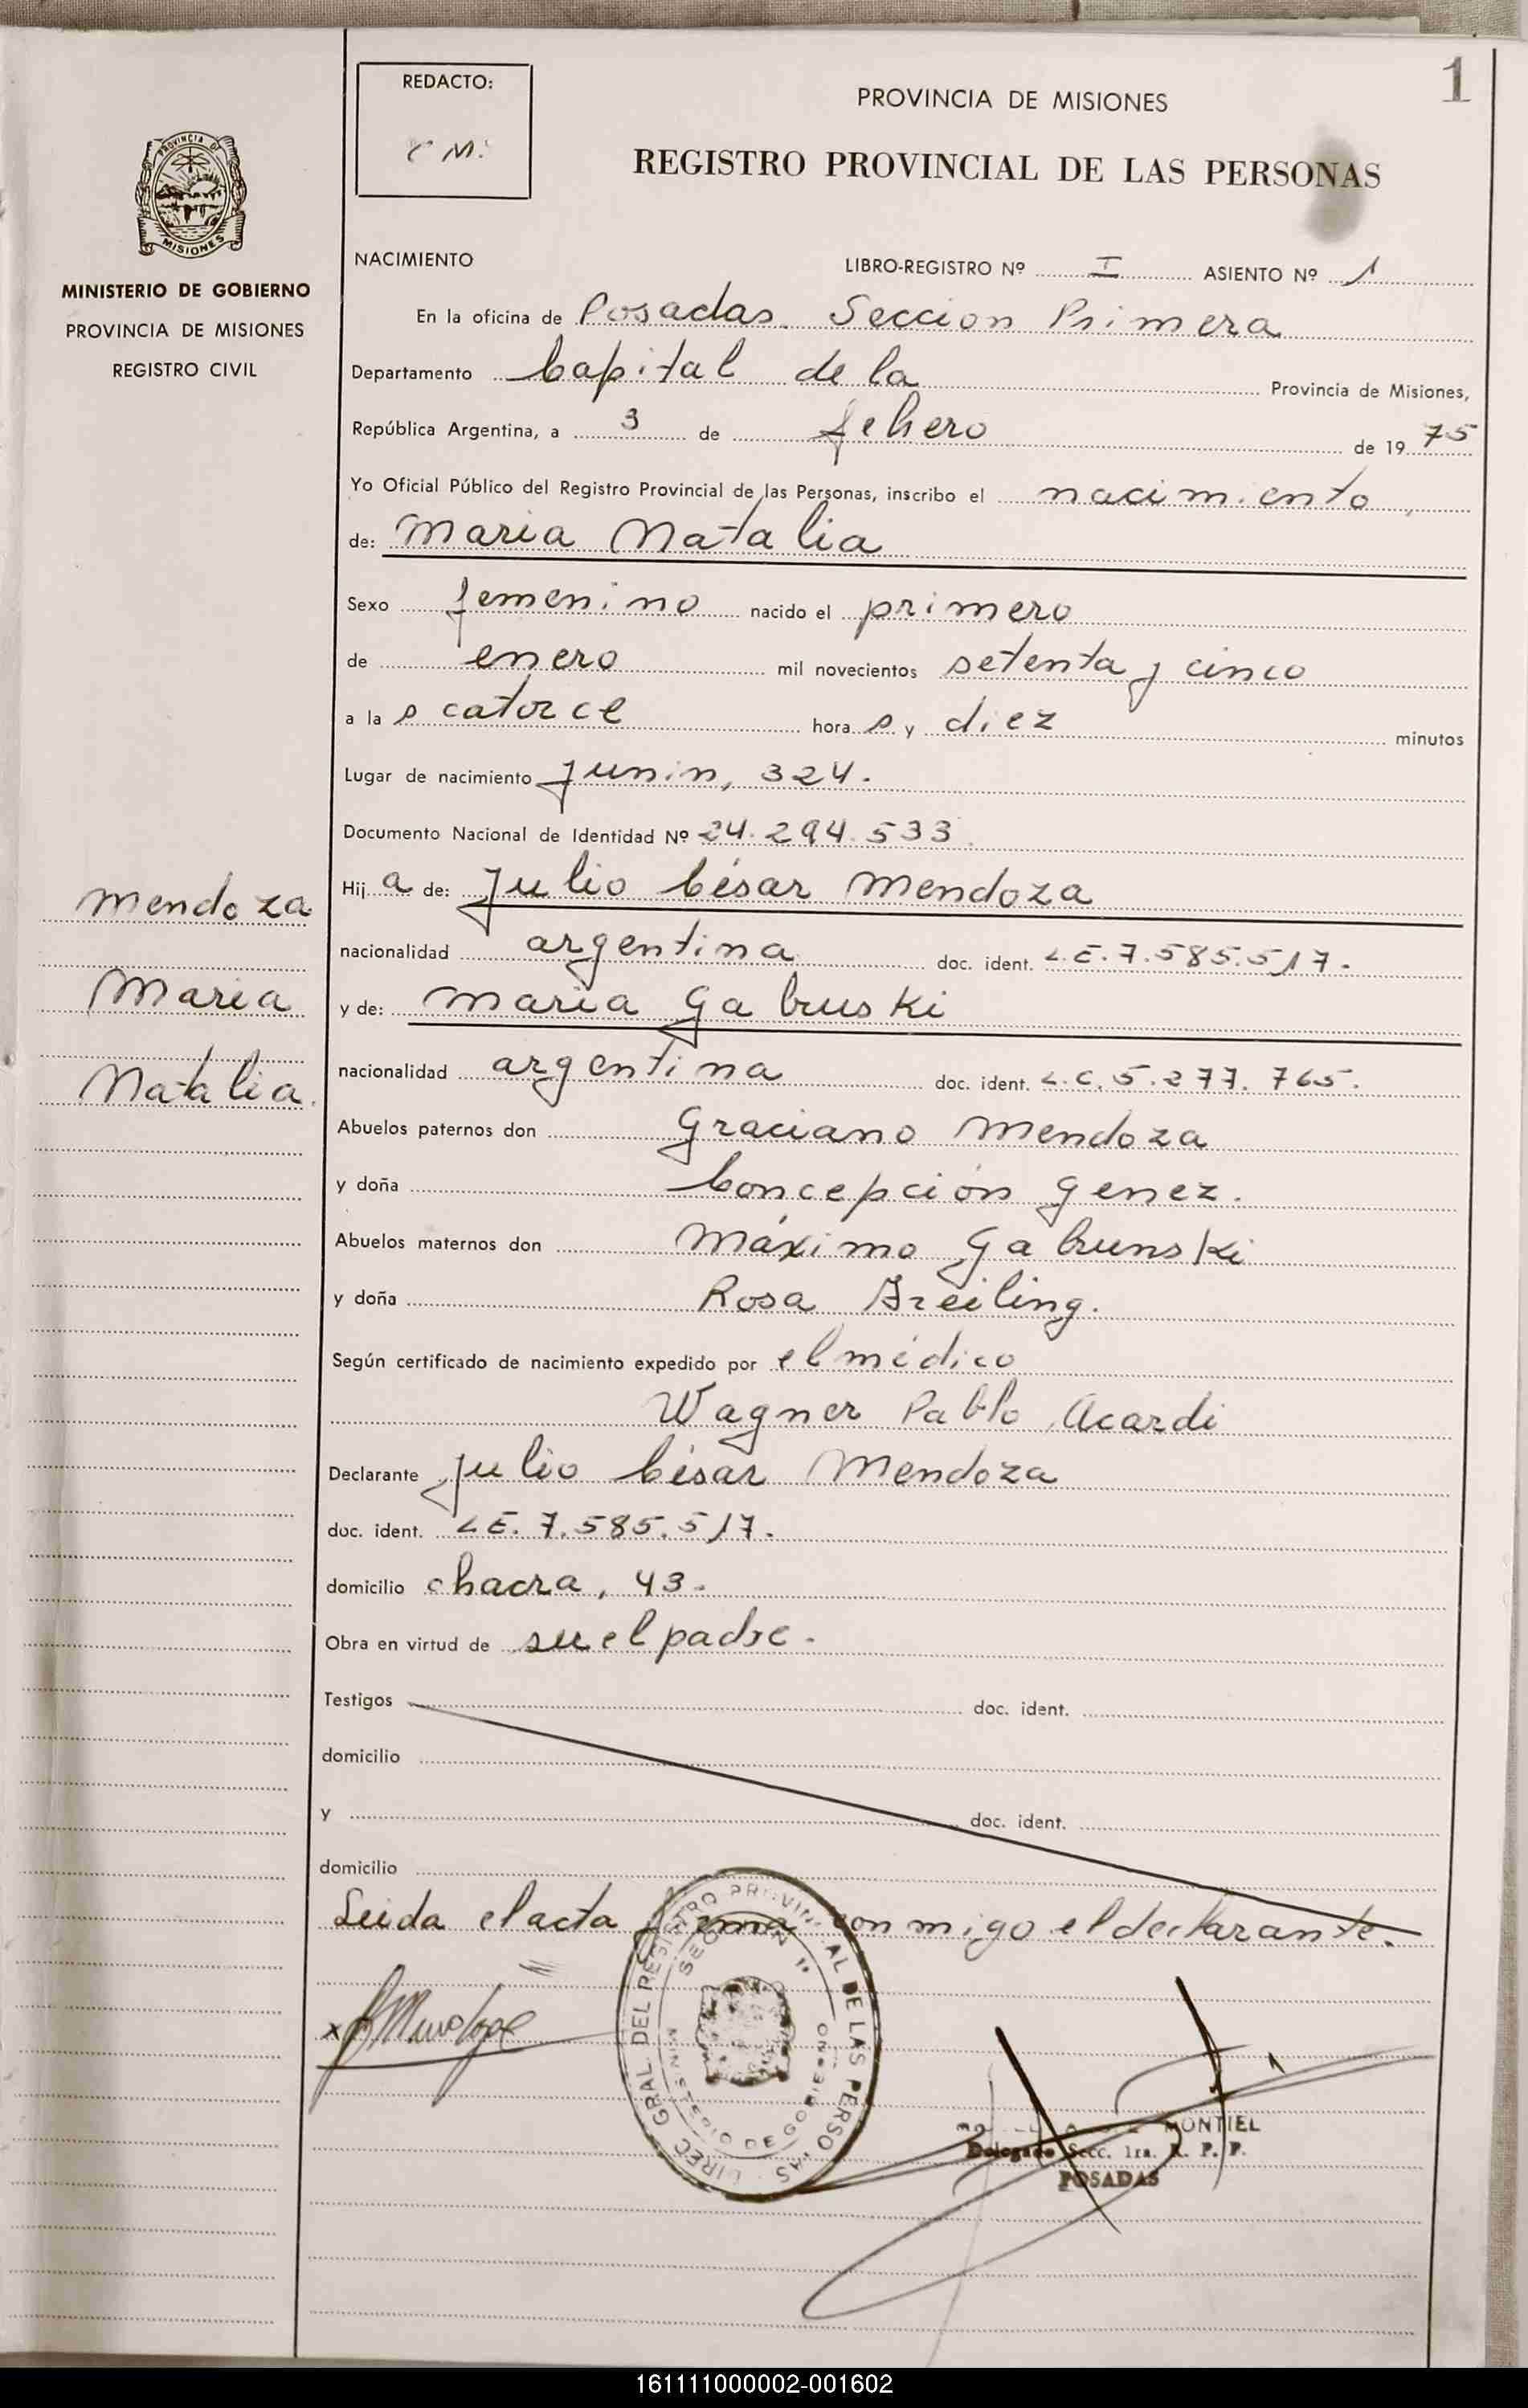 1
REDACTO:
C M.
PROVINCIA DE MISIONES
REGISTRO PROVINCIAL DE LAS PERSONAS
PROVINCIA DE
MISIONES
MINISTERIO DE GOBIERNO
PROVINCIA DE MISIONES
REGISTRO CIVIL
NACIMIENTO LIBRO-REGISTRO Nº I ASIENTO Nº 1
En la oficina de Posadas. Seccion Primera
Departamento Capital de la Provincia de Misiones,
República Argentina, a 3 de de 1975
Yo Oficial Público del Registro Provincial de las Personas, inscribo el nacimiento
de: Maria Natalia
Sexo femenino nacido el primero
de enero mil novecientos setenta y cinco
a la s catorce hora s y diez minutos
Lugar de nacimiento Junin, 324.
Documento Nacional de Identidad Nº 24.294.533
Hij a de: Julio César Mendoza
nacionalidad argentina doc. ident. L.E. 7.585.517.
y de: Maria Gabruski
nacionalidad argentina doc. ident. L.C. 5.277.765.
Mendoza
Maria
Natalia.
Abuelos paternos don Graciano Mendoza
y doña Concepción Genez.
Abuelos maternos don Máximo Gabrunski
y doña Rosa Breiling.
Según certificado de nacimiento expedido por el médico
Wagner Pablo Acardi
Declarante Julio César Mendoza
doc. ident. L E. 7.585.517.
domicilio chacra, 43.
Obra en virtud de ser el padre.
Testigos doc. ident.
domicilio
y doc. ident.
domicilio
Leida el acta firma conmigo el declarante.
DIREC. GRAL. DEL REGISTRO PROVINCIAL DE LAS PERSONAS
SECCION 1ª
MINISTERIO DE GOBIERNO
MONTIEL
Delegado Secc. 1ra. R. P. P.
POSADAS
161111000002-001602